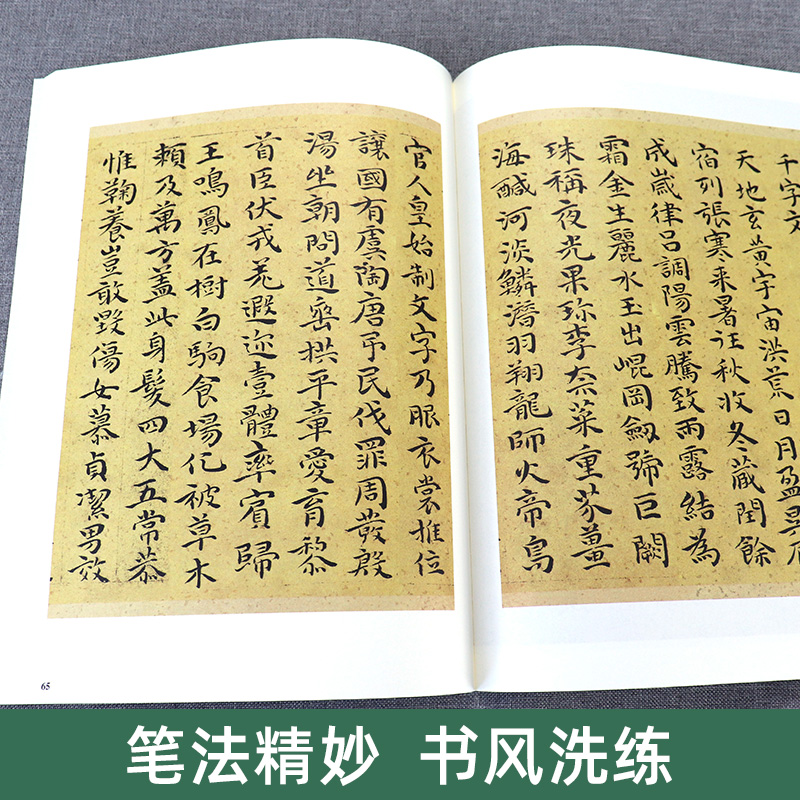 千字文
天地玄黄宇宙洪荒日月盈昃
宿列張寒来暑往秋收冬藏閏餘
成歲律呂調陽雲騰致雨露結為
霜金生麗水玉出崐岡劒號巨闕
珠稱夜光果珎李柰菜重芥薑
海醎河淡鱗潛羽翔龍師火帝鳥
官人皇始制文字乃服衣裳推位
讓國有虞陶唐弔民伐罪周發殷
湯坐朝問道垂拱平章愛育黎
首臣伏戎羌遐迩壹體率賓歸
王鳴鳳在樹白駒食場化被草木
賴及萬方盖此身髮四大五常恭
惟鞠養豈敢毀傷女慕貞潔男效
65
笔法精妙 书风洗练